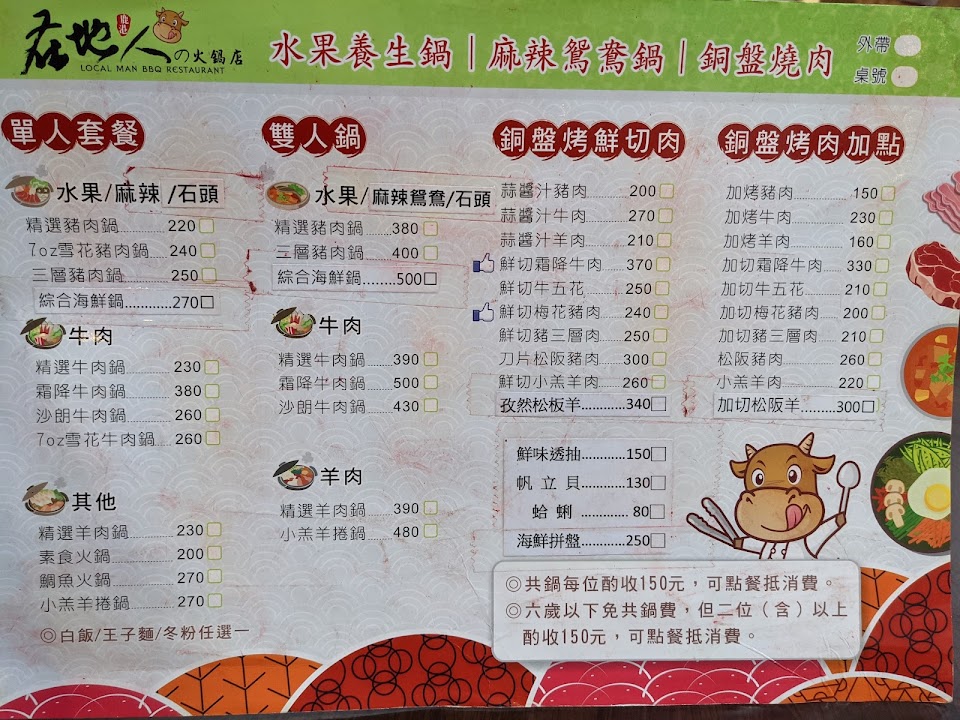 在地人の火鍋店
鹿港
LOCAL MAN BBQ RESTAURANT
水果養生鍋｜麻辣鴛鴦鍋｜銅盤燒肉
外帶
桌號
單人套餐
水果/麻辣/石頭
精選豬肉鍋......220□
7oz雪花豬肉鍋......240□
三層豬肉鍋......250□
綜合海鮮鍋............270□
牛肉
精選牛肉鍋......230□
霜降牛肉鍋......380□
沙朗牛肉鍋......260□
7oz雪花牛肉鍋......260□
其他
精選羊肉鍋......230□
素食火鍋......200□
鯛魚火鍋......270□
小羔羊捲鍋......270□
◎白飯/王子麵/冬粉任選一
雙人鍋
水果/麻辣鴛鴦/石頭
精選豬肉鍋......380□
三層豬肉鍋......400□
綜合海鮮鍋........500□
牛肉
精選牛肉鍋......390□
霜降牛肉鍋......500□
沙朗牛肉鍋......430□
羊肉
精選羊肉鍋......390□
小羔羊捲鍋......480□
銅盤烤鮮切肉
蒜醬汁豬肉......200□
蒜醬汁牛肉......270□
蒜醬汁羊肉......210□
鮮切霜降牛肉......370□
鮮切牛五花......250□
鮮切梅花豬肉......240□
鮮切豬三層肉......250□
刀片松阪豬肉......300□
鮮切小羔羊肉......260□
孜然松板羊............340□
鮮味透抽............150□
帆立貝............130□
蛤蜊............80□
海鮮拼盤............250□
銅盤烤肉加點
加烤豬肉......150□
加烤牛肉......230□
加烤羊肉......160□
加切霜降牛肉......330□
加切牛五花......210□
加切梅花豬肉......200□
加切豬三層肉......210□
松阪豬肉......260□
小羔羊肉......220□
加切松阪羊.........300□
◎共鍋每位酌收150元，可點餐抵消費。
◎六歲以下免共鍋費，但二位（含）以上
酌收150元，可點餐抵消費。